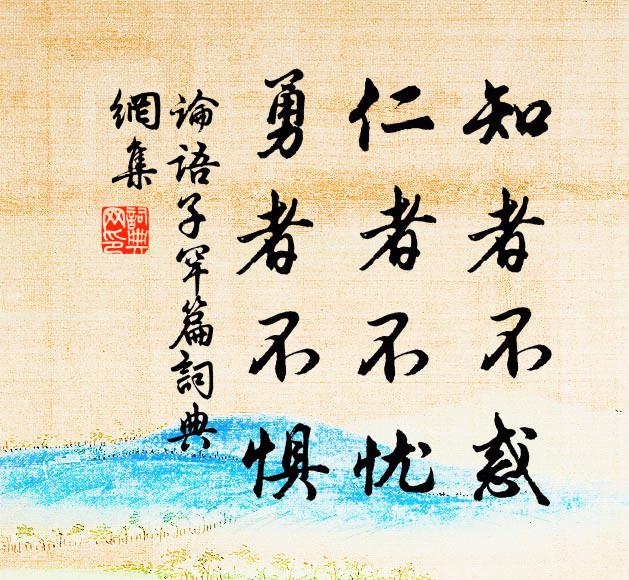 知者不惑
仁者不忧
勇者不惧
論語子罕篇詞典
網集
詞典
网印